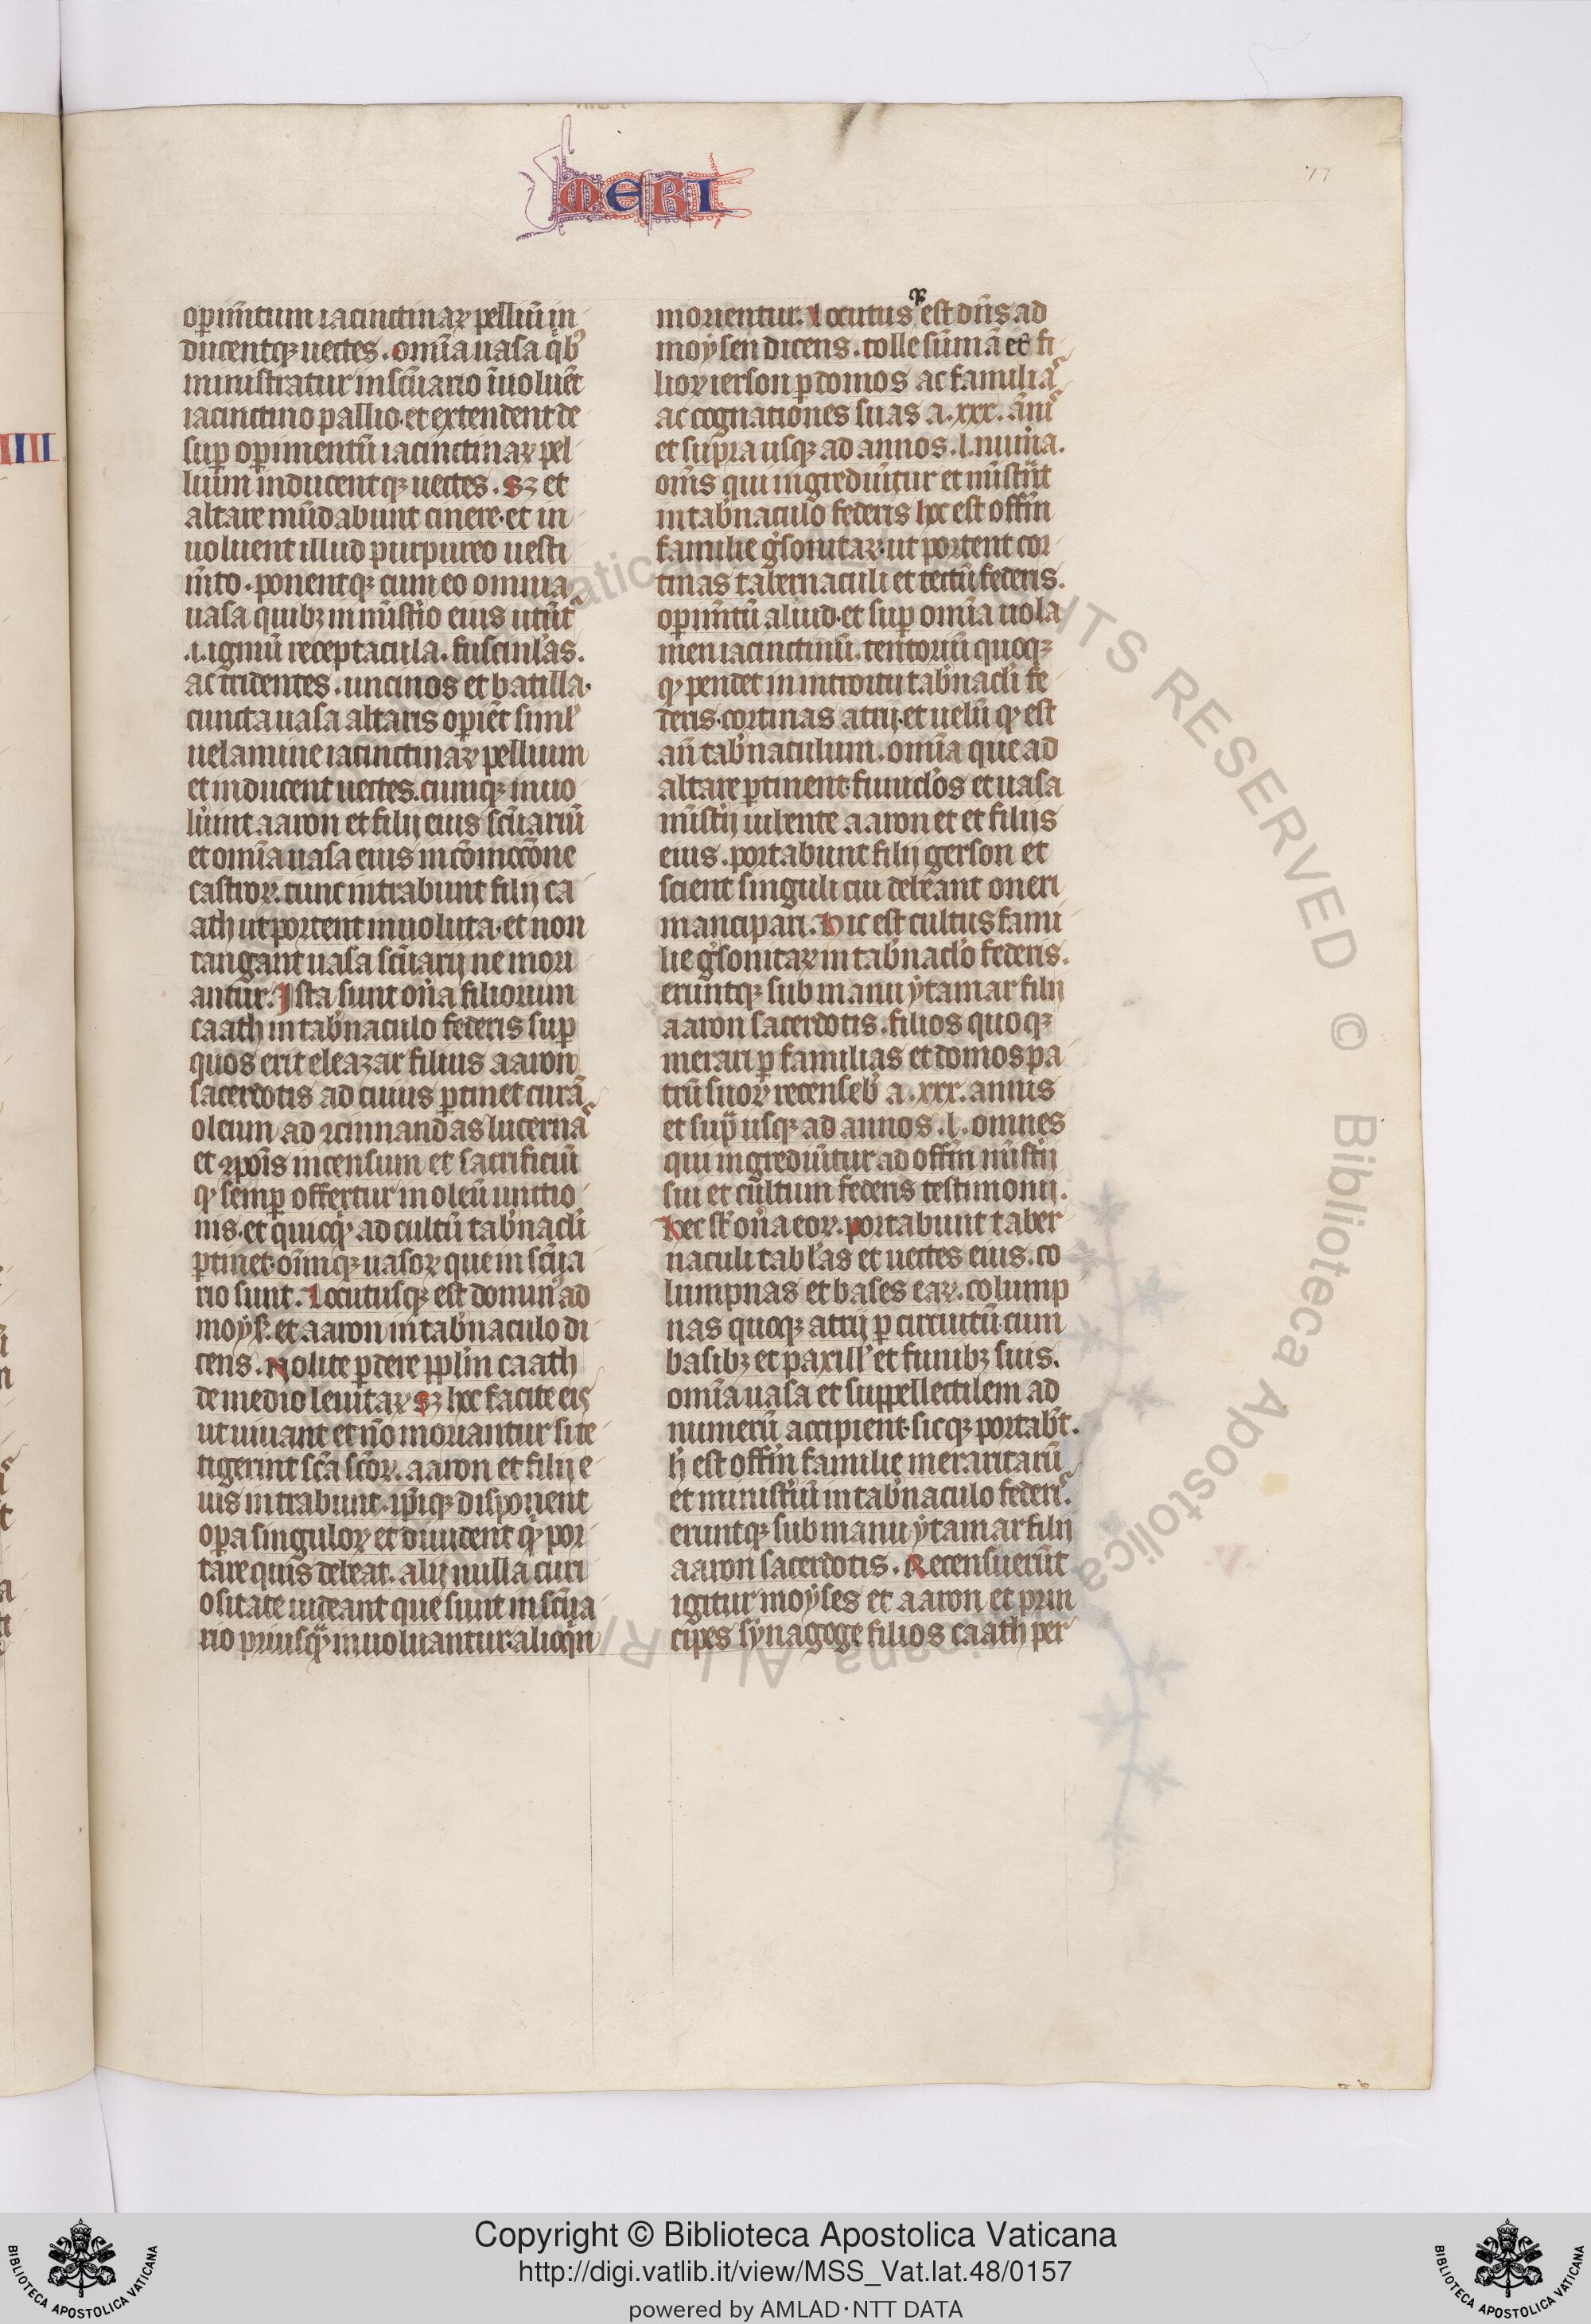 MERI
77
IIII
op̲im̄tum iacinctinaꝝ pelliū in
ducentqꝫ uectes. om̄ia uasa qͥbꝰ
ministratur in sc̄uario īuoluēt
iacinctino pallio. et extendent de
sup̲ op̲imentū iacinctinaꝝ pel
lium inducentqꝫ uectes. sꝫ et
altare mūdabunt cinere. et in
uoluent illud purpureo uesti
m̄to. ponentqꝫ cum eo omnia
uasa quibꝫ in mīstͥio eius utūtͬ
.i. igniū receptacula. fuscinl̓as.
ac tridentes. uncinos et batilla.
cuncta uasa altaris op̲iēt simͥl
uelamine iacinctinaꝝ pellium
et inducent uectes. cumqꝫ inuo
lu̓unt aaron et filij eius sc̄uariū
et om̄ia uasa eius in cōmoc̄one
castroꝝ. tunc intrabunt filij ca
ath ut portent inuoluta. et non
tangant uasa sc̄uarij ne mori
antur. Ista sunt on̓a filiorum
caath in tab̓naculo federis sup̲
quos erit eleazar filius aaron
sacerdotis ad cuius p̲tinet curā
oleum ad ꝯcinnandas lucernas
et ꝯpōis incensum et sacrificiū
qͩ semp̲ offertur in oleū unctio
nis. et quicqͩ ad cultū tab̓nacl̓i
p̲tinet. oīmqꝫ uasoꝝ que in sc̄ua
rio sunt. Locutusqꝫ est dominꝰ ad
moẏs̄. et aaron in tab̓naculo di
cens. Nolite p̲dere pp̄lm caath
de medio leuitaꝝ sꝫ hoc facite eis
ut uiuant et nō moriantur si te
tigerint sc̄a sc̄oꝝ. aaron et filij e
ius intrabunt. ip̄iqꝫ disponent
op̲a singuloꝝ et diuident qͩ por
tare quis debeat. alij nulla curi
ositate uideant que sunt in sc̄ua
rio priusqͣ inuoluantur. alioqͥn
morientur. Locutus est dn̄s ad
moẏsen dicens. tolle sūmā et fi
lioꝝ ierson p̲ domos ac familias
ac cognationes suas a .xxx. ānis
et supra usqꝫ ad annos .l. num̓a.
om̄s qui ingrediūtur et mīstͣnt
in tab̓naculo federis hoc est offm̄
familie g̓sonitaꝝ. ut portent cor
tinas tabernaculi et tectū federis.
op̲im̄tū aliud. et sup̲ om̄ia uela
men iacinctinū. tentoriū quoqꝫ
qͩ pendet in introitu tab̓nacl̓i fe
deris. cortinas atrij. et uelū qͩ est
an̄ tab̓naculum. om̄ia que ad
altare p̲tinent. funicl̓os et uasa
mīstͥij iubente aaron et et filijs
eius. portabunt filij gerson et
scient singuli cui debeant oneri
mancipari. Hic est cultus fami
lie g̓sonitaꝝ in tab̓nacl̓o federis.
eruntqꝫ sub manu ẏtamar filij
aaron sacerdotis. filios quoqꝫ
merari p̲ familias et domos pa
trū suoꝝ recenseb̓ a .xxx. annis
et supͣ usqꝫ ad annos .l. omnes
qui ingrediūtur ad offm̄ mīstͥij
sui et cultum federis testimonij.
Hec st̄ on̓a eoꝝ. portabunt taber
naculi tabl̓as et uectes eius. co
lumpnas et bases eaꝝ. colump
nas quoqꝫ atrij p̲ circuitū cum
basibꝫ et paxill̓ et funibꝫ suis.
om̄ia uasa et suppellectilem ad
numerū accipient. sicqꝫ portabt̄.
h̓ est offm̄ familie meraritarū
et ministͥiū in tab̓naculo federis.
eruntqꝫ sub manu ẏtamar filij
aaron sacerdotis. Recensuerūt
igitur moẏses et aaron et prin
cipes sẏnagoge filios caath per
Copyright © Biblioteca Apostolica Vaticana
http://digi.vatlib.it/view/MSS_Vat.lat.48/0157
powered by AMLAD·NTT DATA
BIBLIOTECA APOSTOLICA VATICANA
BIBLIOTECA APOSTOLICA VATICANA